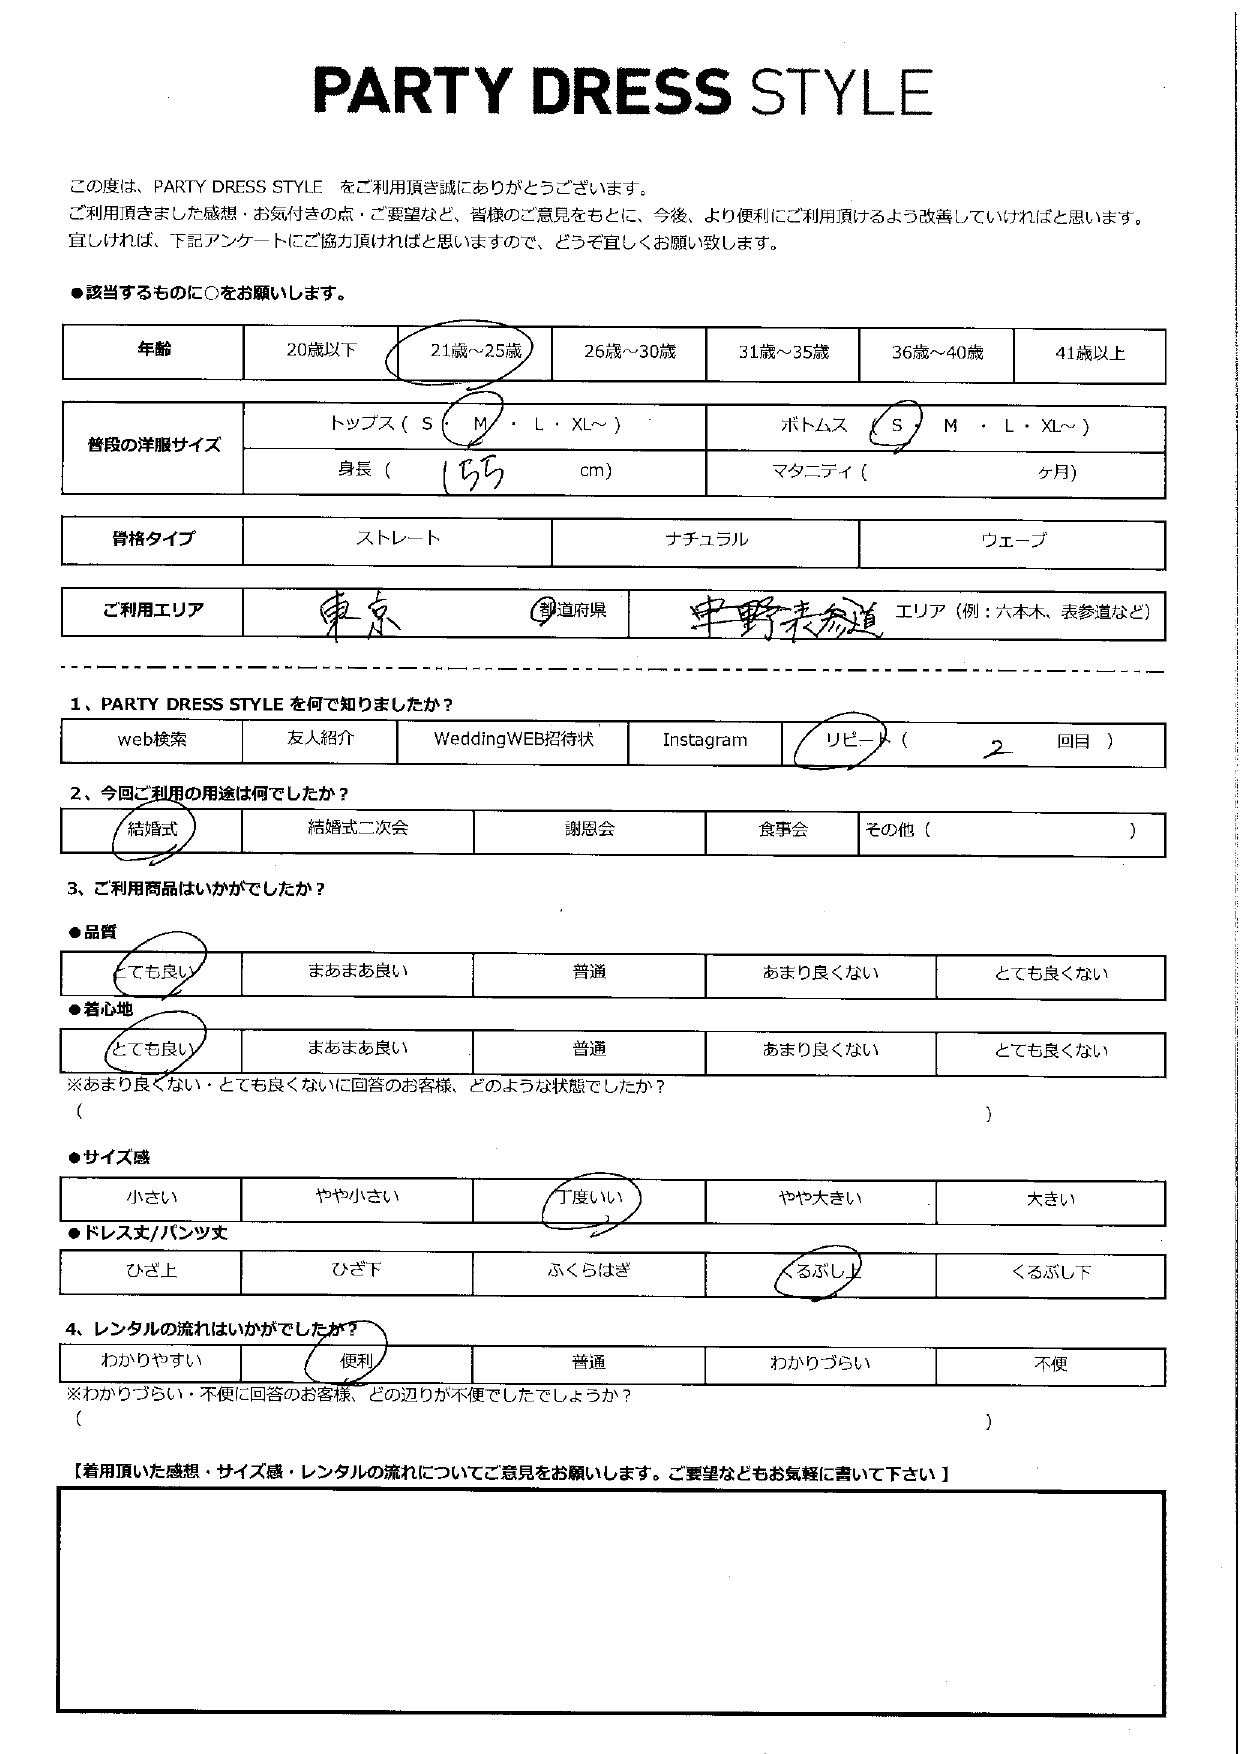 PARTY DRESS STYLE
この度は、PARTY DRESS STYLE　をご利用頂き誠にありがとうございます。
ご利用頂きました感想・お気付きの点・ご要望など、皆様のご意見をもとに、今後、より便利にご利用頂けるよう改善していければと思います。
宜しければ、下記アンケートにご協力頂ければと思いますので、どうぞ宜しくお願い致します。
●該当するものに○をお願いします。
年齢 20歳以下 21歳～25歳 26歳～30歳 31歳～35歳 36歳～40歳 41歳以上
普段の洋服サイズ トップス ( S ・ M ・ L ・ XL～ ) ボトムス ( S ・ M ・ L ・ XL～ )
身長 ( 155 cm) マタニティ ( ヶ月)
骨格タイプ ストレート ナチュラル ウェーブ
ご利用エリア 東京 都道府県 中野表参道 エリア（例：六本木、表参道など）
1、PARTY DRESS STYLE を何で知りましたか？
web検索 友人紹介 WeddingWEB招待状 Instagram リピート ( 2 回目 )
2、今回ご利用の用途は何でしたか？
結婚式 結婚式二次会 謝恩会 食事会 その他 ( )
3、ご利用商品はいかがでしたか？
●品質
とても良い まあまあ良い 普通 あまり良くない とても良くない
●着心地
とても良い まあまあ良い 普通 あまり良くない とても良くない
※あまり良くない・とても良くないに回答のお客様、どのような状態でしたか？
( )
●サイズ感
小さい やや小さい 丁度いい やや大きい 大きい
●ドレス丈/パンツ丈
ひざ上 ひざ下 ふくらはぎ くるぶし上 くるぶし下
4、レンタルの流れはいかがでしたか？
わかりやすい 便利 普通 わかりづらい 不便
※わかりづらい・不便に回答のお客様、どの辺りが不便でしたでしょうか？
( )
【着用頂いた感想・サイズ感・レンタルの流れについてご意見をお願いします。ご要望などもお気軽に書いて下さい】